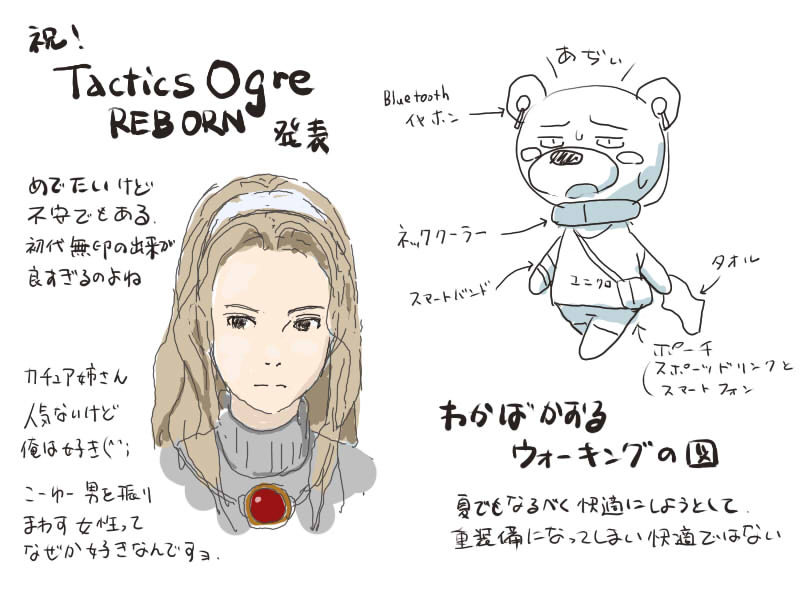 祝!
Tactics Ogre
REBORN 発表
めでたいけど
不安でもある.
初代無印の出来が
良すぎるのよね
カチュア姉さん
人気ないけど
俺は好きぐい
こーゆー男を振り
まわす女性って
なぜか好きなんですョ.
あぢぃ
Bluetooth
イヤホン
ネッククーラー
スマートバンド
ユニクロ
タオル
ポーチ
スポーツドリンクと
スマートフォン
わかばかおる
ウォーキングの図
夏でもなるべく快適にしようとして.
重装備になってしまい快適ではない